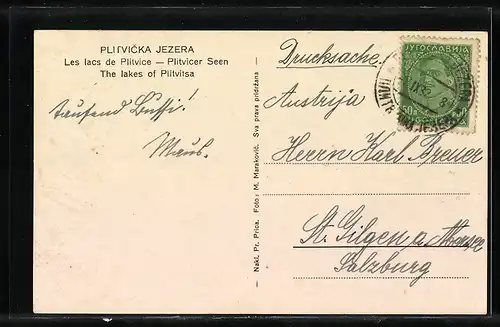 PLITVIČKA JEZERA
Les lacs de Plitvice — Plitvicer Seen
The lakes of Plitvitsa
tausend Bussi!
Maus.
Nakl. Pr. Prica. Foto: M. Maraković. Sva prava pridržana
Drucksache
Austrija
Herrn Karl Greuer
St. Gilgen a.
Salzburg
ЈУГОСЛАВИЈА